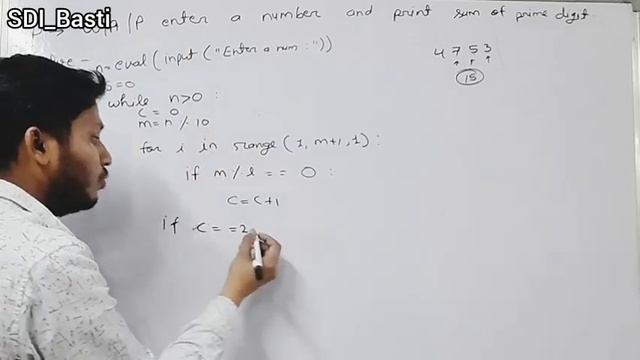 SDI_Basti
enter a number and print sum of prime digit
n=eval(input("Enter a num:"))
4 7 5 3
15
=0
while n>0:
c = 0
m=n%10
for i in range(1,m+1,1):
if m%i==0:
c=c+1
if c==2